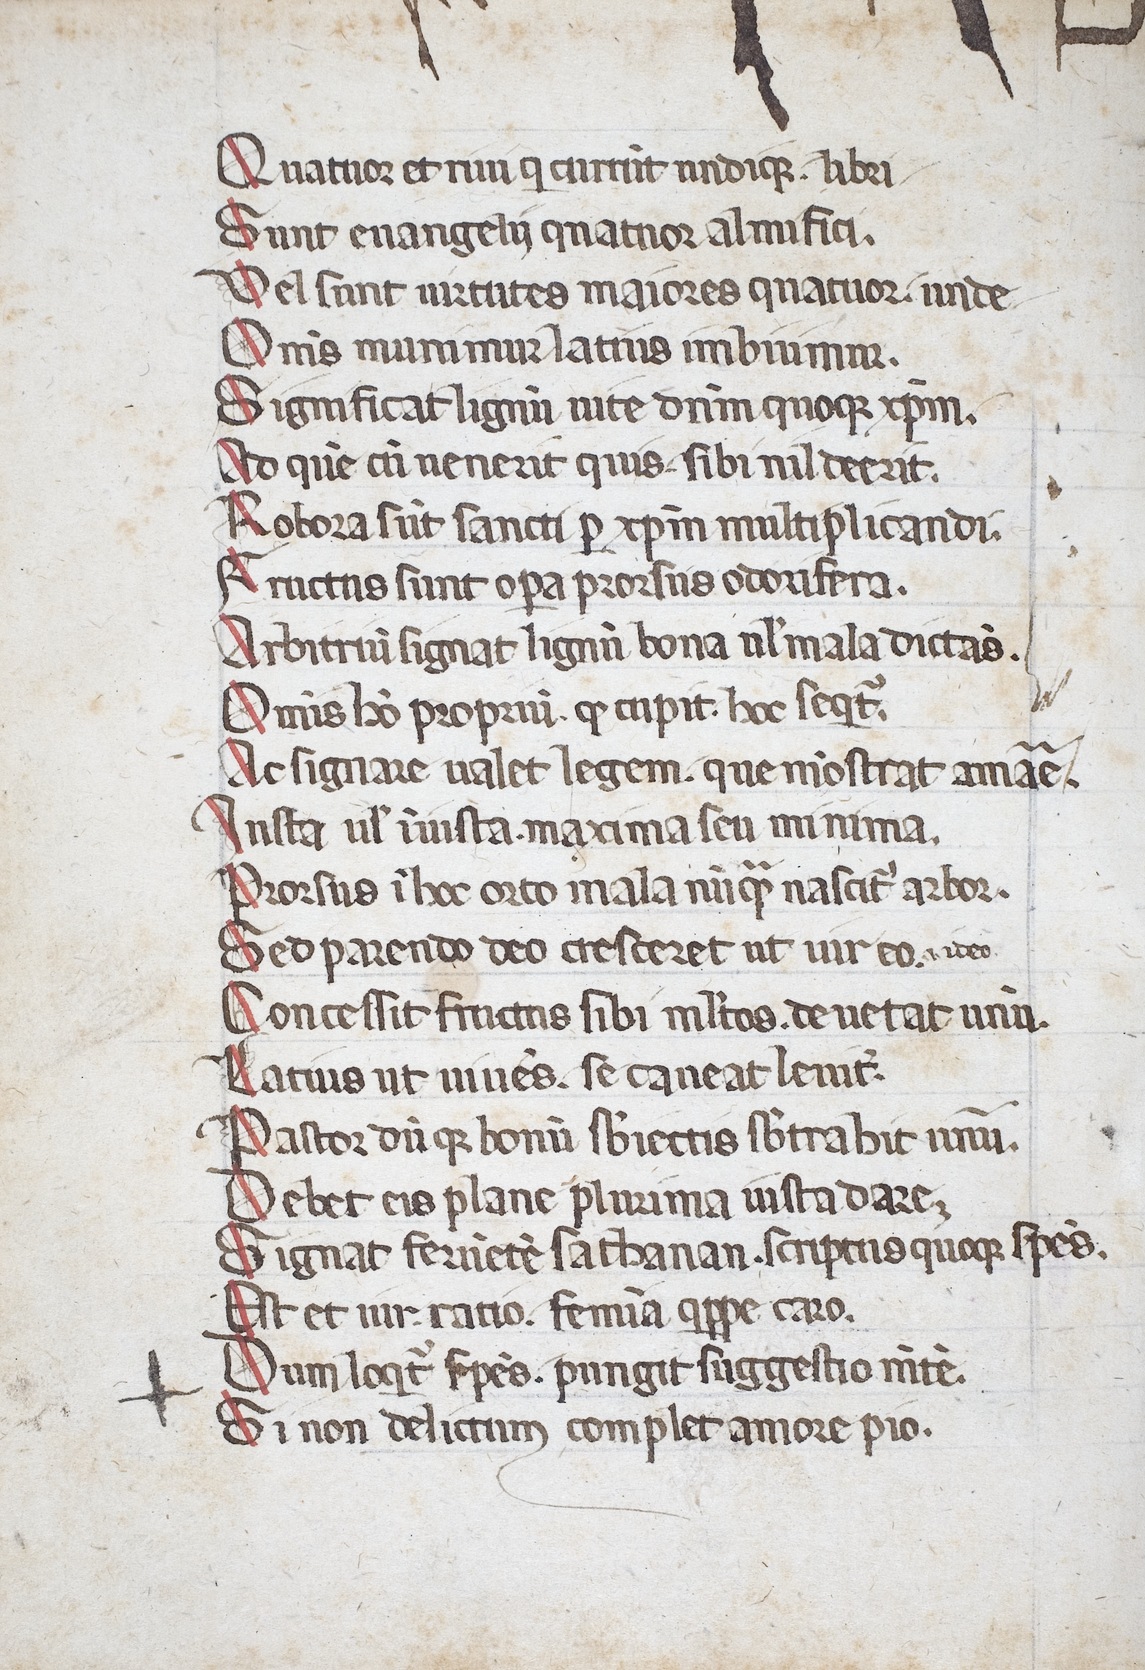 Quatuor et riui q currūt undiqꝫ. libri
Sunt euangelij quatuor almifici.
Vel sunt uirtutes maiores quatuor. unde
Om̄is munimur latius imbuimur.
Significat lignū uite dn̄m quoqꝫ xp̄m.
Ad quē cū uenerit quis. sibi nil deerit.
Robora sūt sancti ꝑ xp̄m multiplicandi.
Fructus sunt oꝑa prorsus odorifera.
Arbitriū signat lignū bona ul' mala dictās.
Om̄is hō propriū. qͥ cupit. hoc seqt᷑.
Ac signare ualet legem. que mōstrat amare.
Iusta ul' īiusta. maxima seu minima.
Prorsus ī hoc orto mala nūqᷓ nascit᷑ arbor.
Sed parendo deo cresceret ut uir eo. ideo
Concessit fructus sibi ml'tos. de uetat unū.
Latius ut uiuēs. se caueat leuit᷑.
Pastor dū qꝫ bonū sb'iectis sb'trahit unū.
Debet eis plane plurima iusta dare
Signat ferūētē sathanan. scriptus quoqꝫ sꝑēs.
Est et uir. ratio. femīa qͥppe caro.
Dum loqt᷑ sꝑēs. pungit suggestio mētē.
Si non delictum complet amore pio.